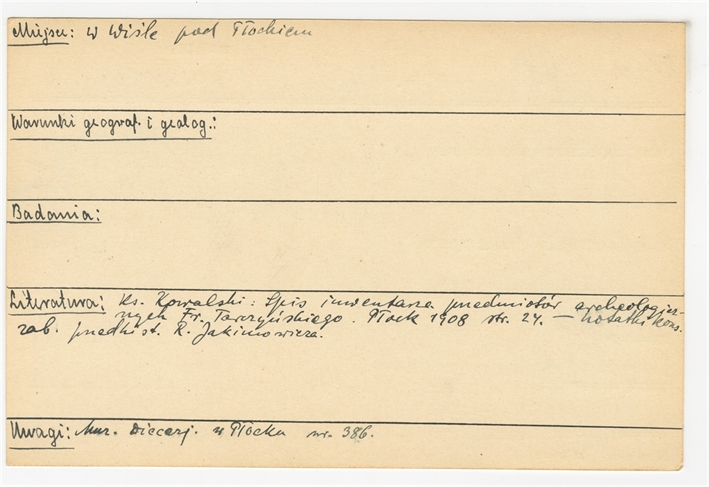 Miejsce: w Wiśle pod Płockiem
Warunki geograf. i geolog.:
Badania:
Literatura: Ks. Kowalski: Spis inwentarza przedmiotów archeologicz-
nych Fr. Tarczyńskiego. Płock 1908 str. 24. — notatki kons.
zab. przedhist. R. Jakimowicza.
Uwagi: Muz. Diecezj. w Płocku nr. 386.